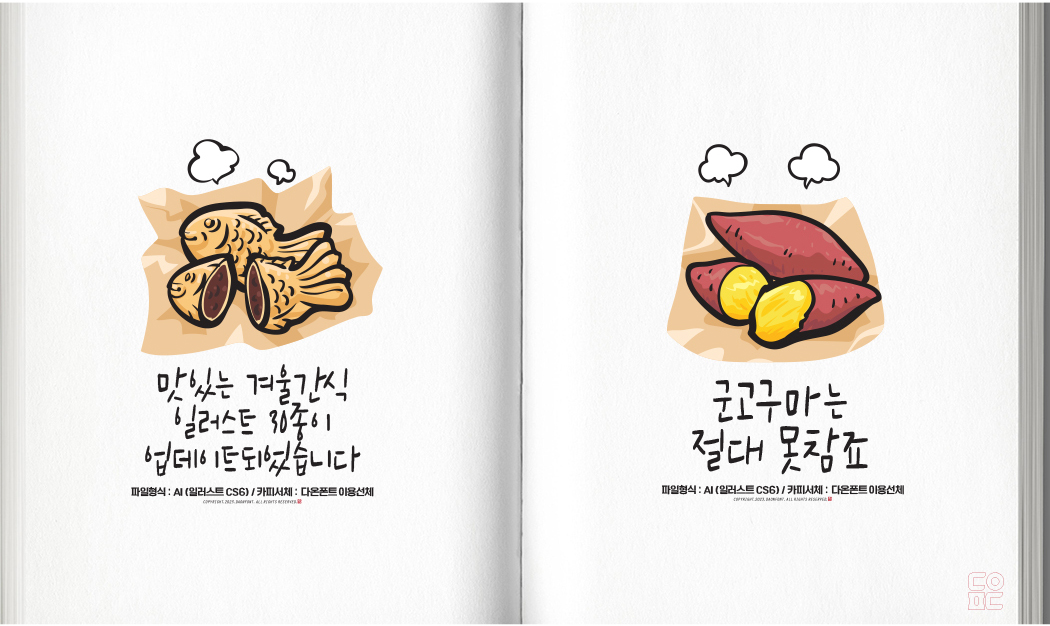 맛있는 겨울간식
일러스트 30종이
업데이트되었습니다
파일형식 : AI (일러스트 CS6) / 카피서체 : 다온폰트 이용선체
COPYRIGHT. 2023. DAONFONT. ALL RIGHTS RESERVED.
군고구마는
절대 못참죠
파일형식 : AI (일러스트 CS6) / 카피서체 : 다온폰트 이용선체
COPYRIGHT. 2023. DAONFONT. ALL RIGHTS RESERVED.